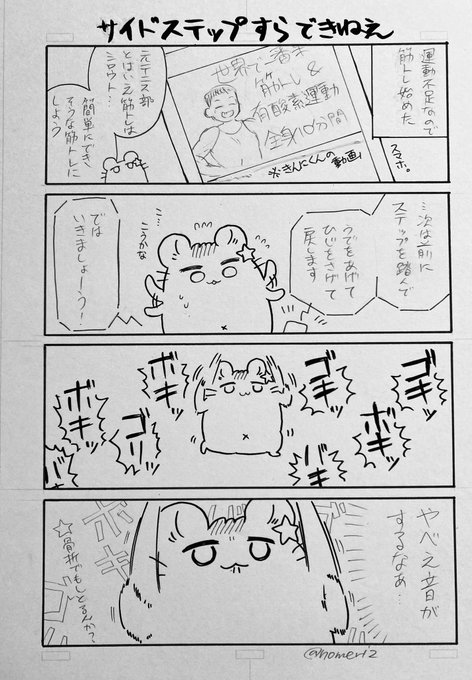 サイドステップすらできねえ
運動不足なので
筋トレ始めた
スマホ。
世界で一番
筋トレ&
有酸素運動
全身10分間
※きんにくんの
動画。
元テニス部
とはいえ筋トレは
シロウト…
簡単にでき
そうな筋トレに
しよう
次は前に
ステップを踏んで
うでをあげて
ひじをさげて
戻します
こ…
こうかな
では
いきましょーう!
ゴキッ
ゴキッ
ボキッ
バキッ
ボキッ
ゴリッ
ボキッ
やべえ音が
するなぁ…
ボキ
☆骨折でもしとるんか?
@homeriz